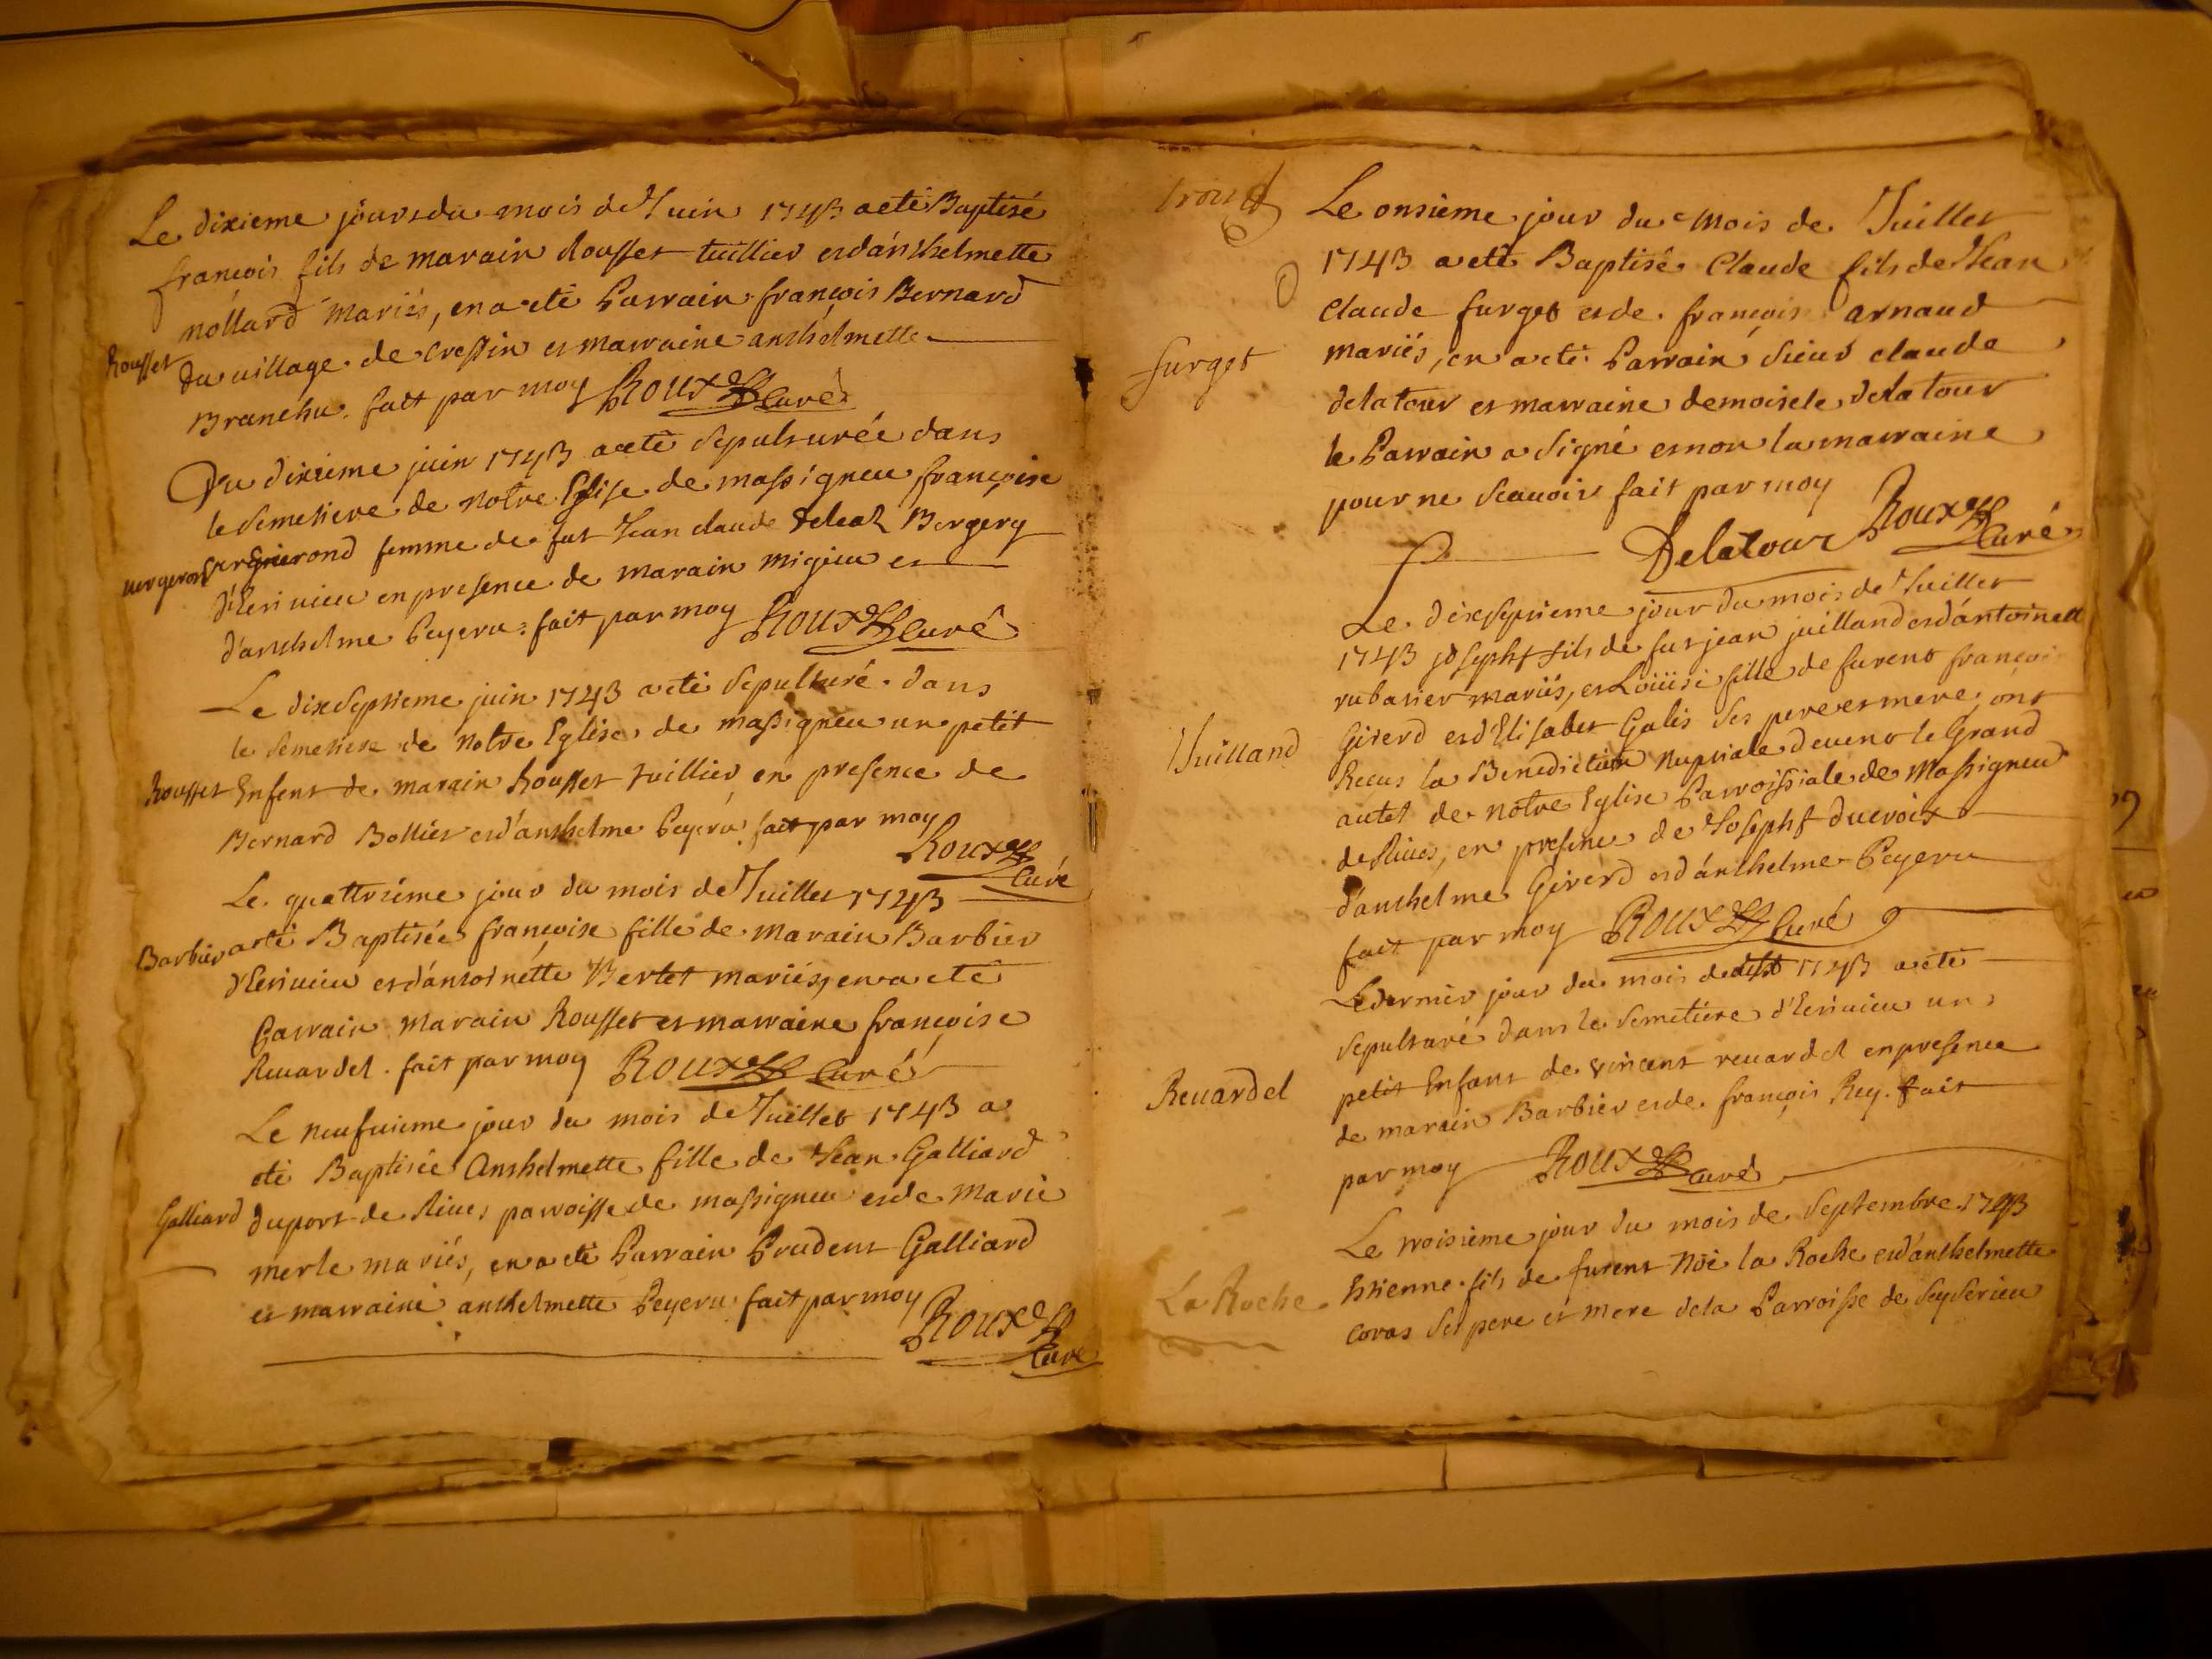 Le dixieme jour du mois de Juin 1743 a eté Baptisé
françois fils de marain Rousset tuillier et d'anthelmette
nollard mariés, en a eté Parrain françois Bernard
Rousset
du village de cressin et marraine anthelmette
Branchu. fait par moy Roux Curé
Du dixieme juin 1743 a eté sepulturée dans
le semetiere de notre Eglise de massigneu françoise
femme de fut Jean claude Bergery
d'Erivieu en presence de marain migieu et
d'anthelme Peyeru. fait par moy Roux Curé
Le dixseptieme juin 1743 a eté sepulturé dans
le semetiere de notre Eglise de massigneu un petit
Rousset Enfent de marain Rousset tuillier en presence de
Bernard Bollier et d'anthelme Peyeru fait par moy
Roux Curé
Le quattrieme jour du mois de Juillet 1743
Barbier a eté Baptisée françoise fille de marain Barbier
d'Erivieu et d'antoinette Berlet mariés, en a eté
Parrain marain Rousset et marraine françoise
Revardel. fait par moy Roux Curé
Le neufvieme jour du mois de Juillet 1743 a
eté Baptisée Anthelmette fille de Jean Galliard
Galliard du port de Rives parroisse de massigneu et de Marie
merle mariés, en a eté Parrain Prudent Galliard
et marraine anthelmette Peyeru fait par moy
Roux Curé
Le onsieme jour du Mois de Juillet
1743 a eté Baptisé Claude fils de Jean
Claude furget et de françoise arnaud
furget
mariés, en a eté Parrain sieur claude
delatour et marraine demoisele delatour
le Parrain a signé et non la marraine
pour ne scauoir fait par moy
Delatour Roux Curé
Le dixseptieme jour du mois de Juillet
1743 joseph fils de fut jean juilland et d'antoinett
rubatier mariés, et Loüise fille de furent françoi
Juilland
Girerd et d'Elisabet Galis ses pere et mere, ont
Recus la Benediction Nuptiale devent le Grand
autel de notre Eglise Parroissiale de Massigneu
de Rives, en presence de Joseph ducroix
d'anthelme Girerd et d'anthelme Peyeru
fait par moy Roux Curé
Le dernier jour du mois d'aust 1743 a eté
sepulturé dans le semetiere d'Erivieu un
Revardel
petit Enfant de vincent revardel en presence
de marain Barbier et de françois Rey. fait
par moy Roux Curé
Le troisieme jour du mois de Septembre 1743
La Roche
Estienne fils de furent Noë la Roche et d'anthelmette
coras ses pere et mere de la Parroisse de Seyserieu